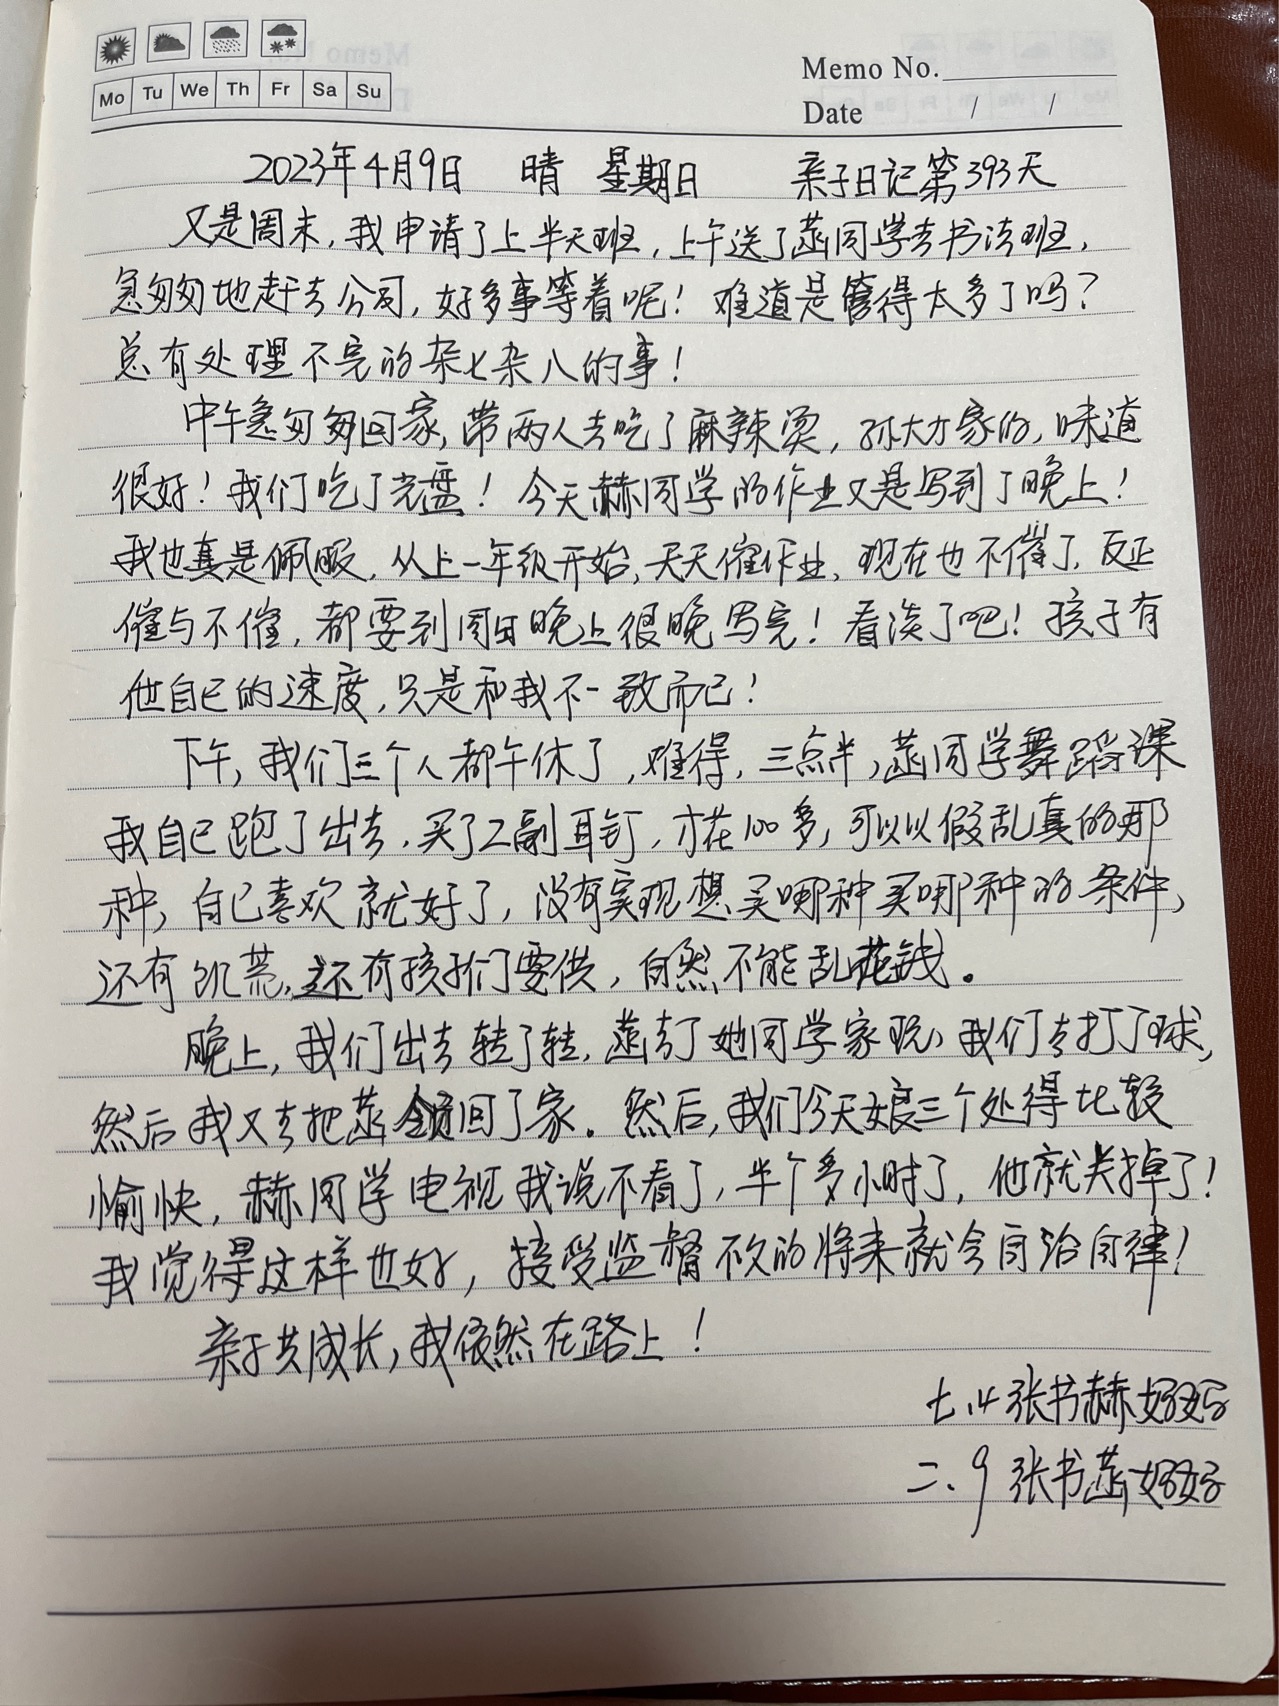 Mo Tu We Th Fr Sa Su
Memo No.
Date / /
2023年4月9日 晴 星期日 亲子日记第393天
又是周末,我申请了上半天班,上午送了菡同学去书法班,
急匆匆地赶去公司,好多事等着呢!难道是管得太多了吗?
总有处理不完的杂七杂八的事!
中午急匆匆回家,带两人去吃了麻辣烫,孙大力家的,味道
很好!我们吃了光盘!今天赫同学的作业又是写到了晚上!
我也真是佩服,从上一年级开始,天天催作业,现在也不催了,反正
催与不催,都要到周日晚上很晚写完!看淡了吧!孩子有
他自己的速度,只是和我不一致而已!
下午,我们三个人都午休了,难得,三点半,菡同学舞蹈课
我自己跑了出去,买了2副耳钉,才花100多,可以以假乱真的那
种,自己喜欢就好了,没有实现想买哪种买哪种的条件,
还有饥荒,还有孩子们要供,自然不能乱花钱。
晚上,我们出去转了转,菡去了她同学家玩,我们去打了球,
然后我又去把菡领回了家。然后,我们今天娘三个处得比较
愉快,赫同学电视我说不看了,半个多小时了,他就关掉了!
我觉得这样也好,接受监督不改的将来就会自治自律!
亲子共成长,我依然在路上!
七.14 张书赫妈妈
二、9 张书菡妈妈